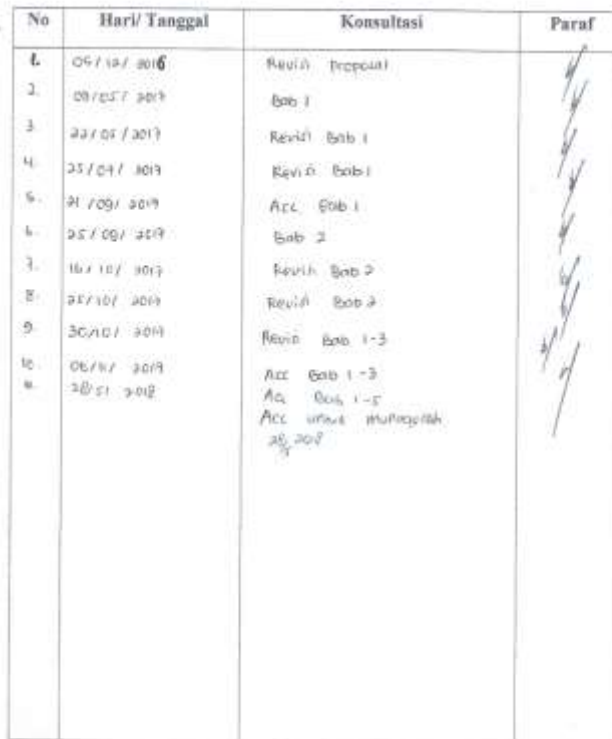 No Hari/ Tanggal Konsultasi Paraf
1. 05/12/2016 Revisi Proposal
2. 09/05/ 2017 Bab 1
3. 22/05/2017 Revisi Bab 1
4. 25/07/ 2017 Revisi Bab 1
5. 21/09/ 2017 Acc Bab 1
6. 25/09/ 2017 Bab 2
7. 16/10/ 2017 Revisi Bab 2
8. 25/10/ 2017 Revisi Bab 2
9. 30/10/ 2017 Revisi Bab 1-3
10. 06/11/ 2017 Acc Bab 1-3
11. 28/5/ 2018 Acc Bab 1-5
Acc untuk munaqosah
28/5 2018